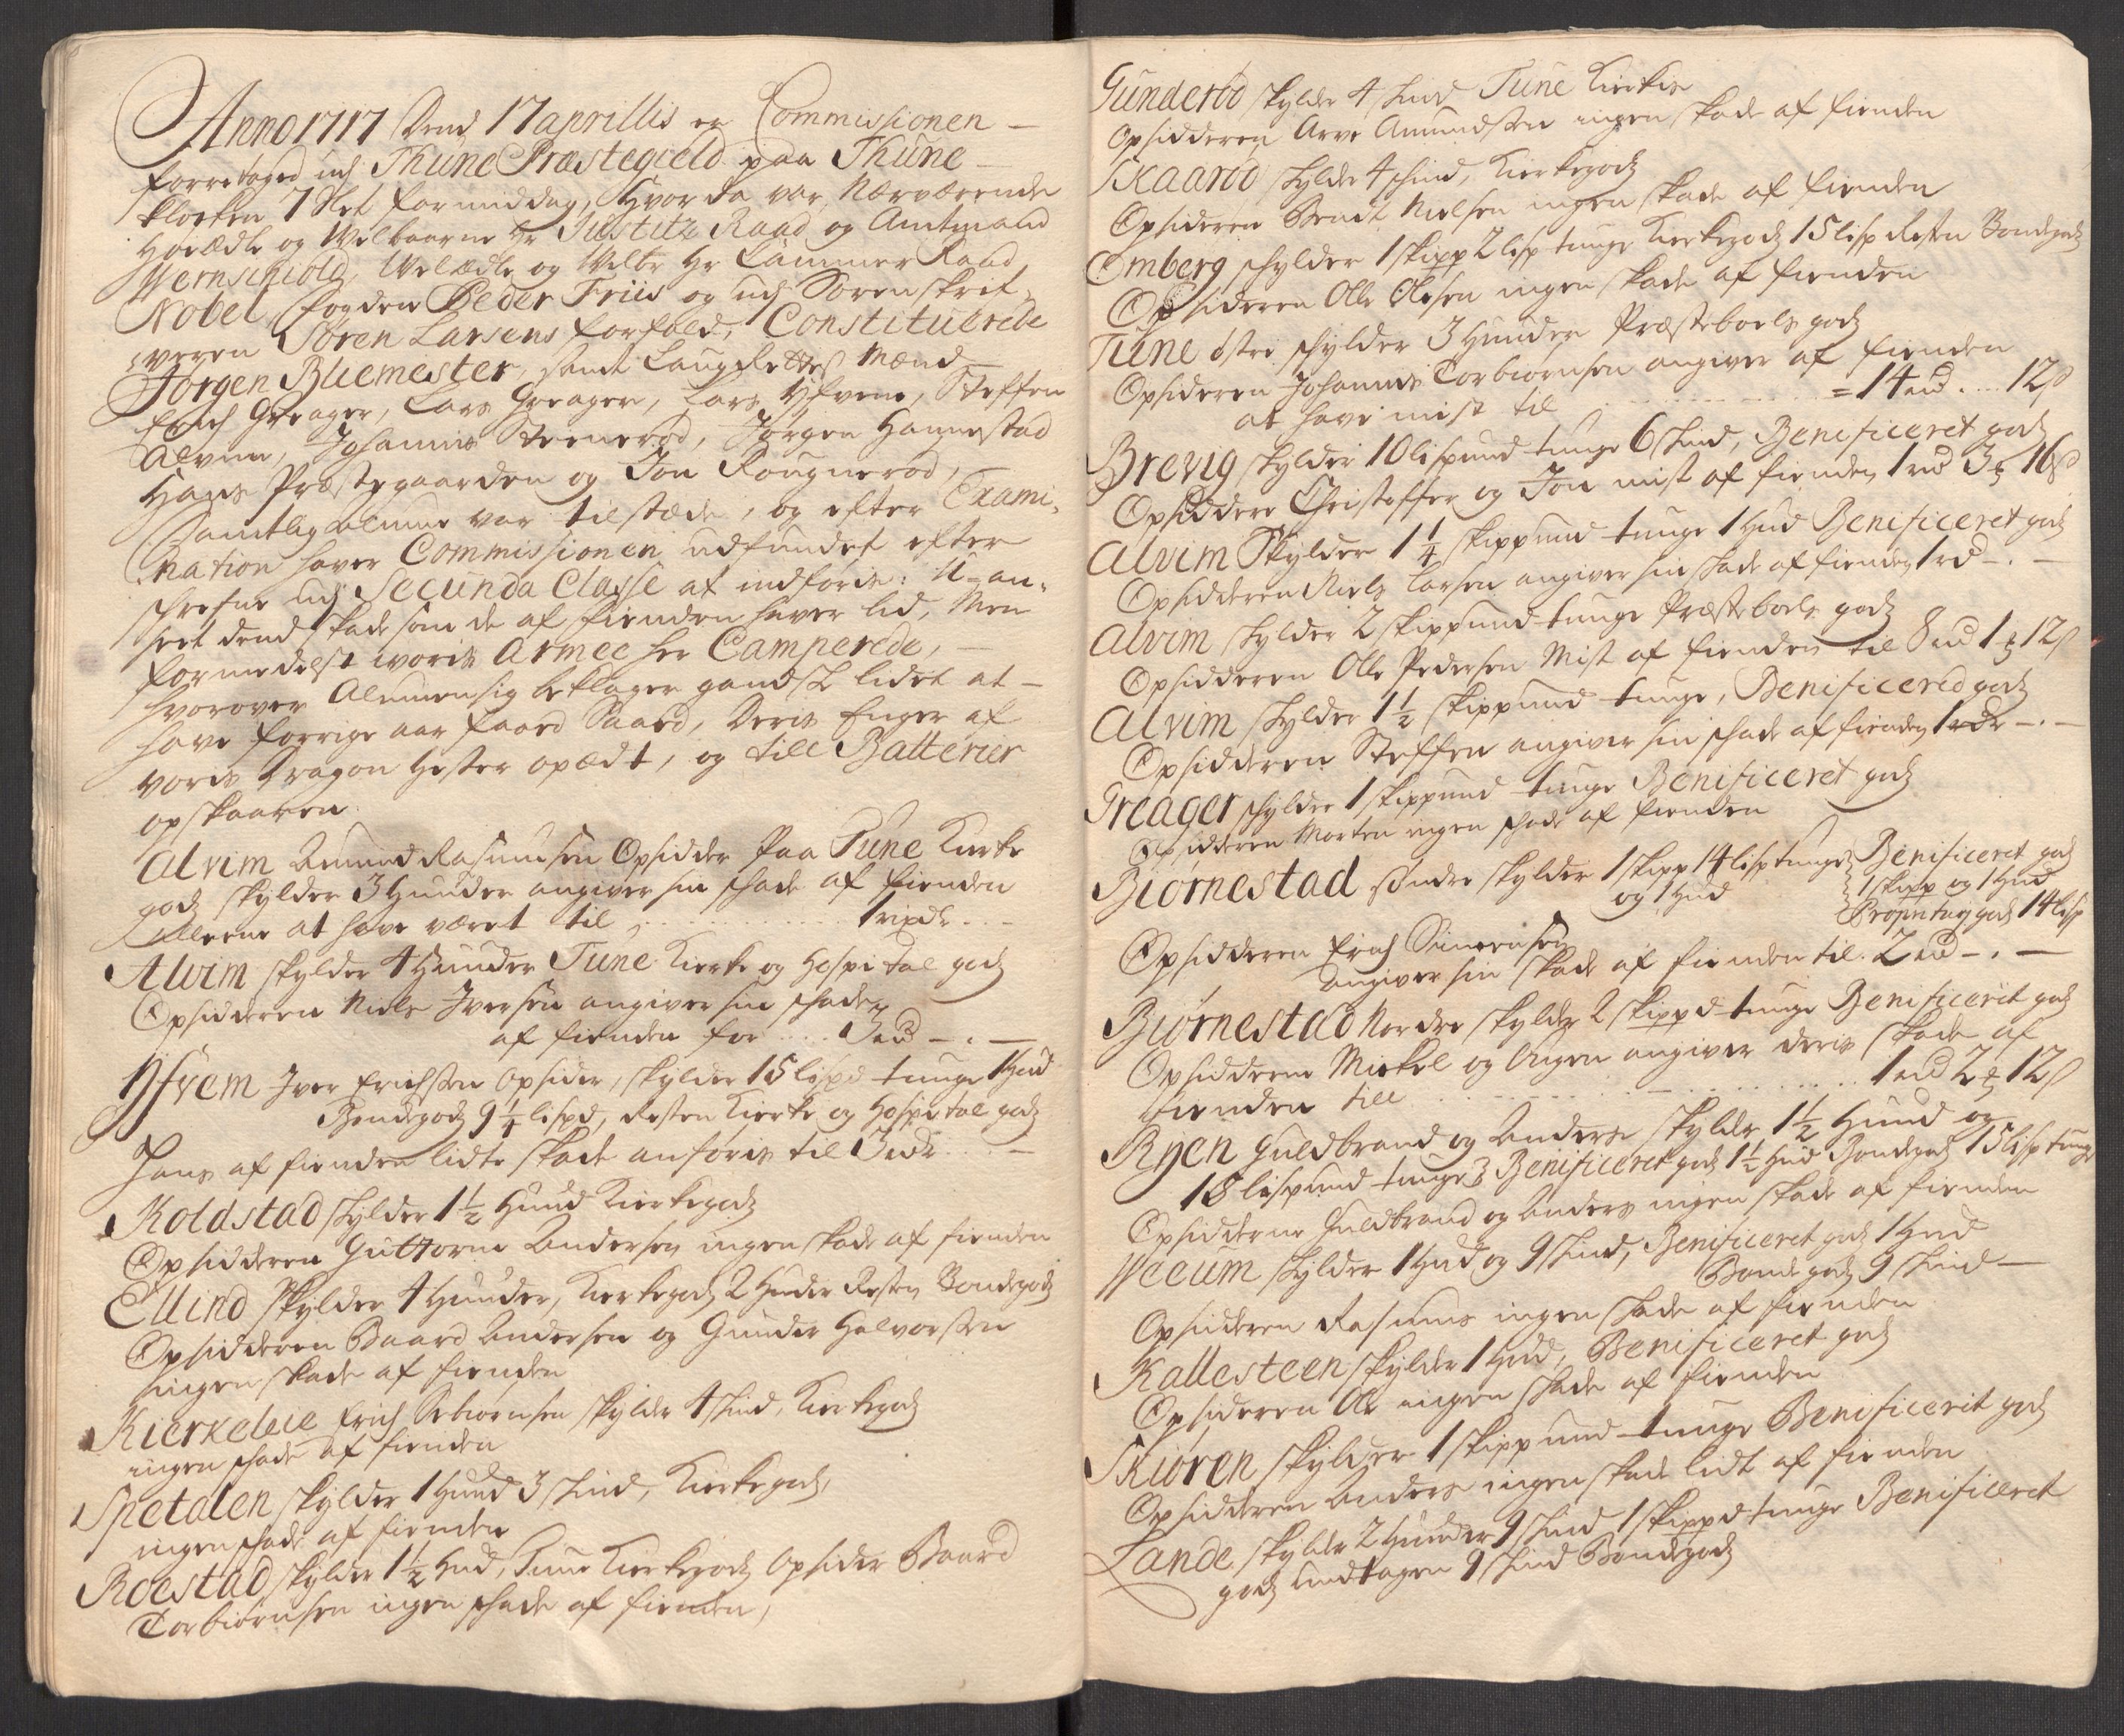 Anno 1717 Dend 17 aprillis er Commissionen
forretaged udj Thune Præstegield paa Thune
klocken 7 Slet formiddag, Hvor da var Nærværende
Høiædle og Welbaarne Hr Justitz Raad og Amtmand
Wernschiold, Welædle og Welbr Hr Cammer Raad
Nobel, fogden Peder Friis og udj Sorenskrif-
veren Søren Larsens forfald, Constituerede
Jørgen Bliemester, samt Laug Rettes Mænd
Erich Greager, Lars Greager, Lars Yfvene, Steffen
Alvim, Johannis Steenerød, Jørgen Hannestad
Hans Præstegaarden og Jon Rougnerød,
Samtlig almue var tilstæde, og efter Exami-
nation haver Commissionen udfundet efter
schrefne udj Secunda Classe at indføris: U-an-
seet dend skade som de af fienden haver lid, Men
formedelst woris Armee her Camperede,
hvorover Almuen sig beklager gandsk lidet at
have forrige aar faaed Saaed, Deris Enger af
voris Dragon Hester opædt, og till Batterier
opskaaren.
Alvim Amund Rasmusen Opsidder Paa Tune Kirke
godz skylder 3 Hunder angiver sin schade af fienden
allene at have været til 1 rixdr
Alvim skylder 4 Hunder Tune Kierke og Hospital godz
Opsidderen Niels Iversen angiver sin schade
af fienden for 3 rd - . -
Yfvem Iver Erichsen Opsider, skylder 15 lispd tunge 1 Hud
Bondegodz 9 1/4 lispd, Resten Kierke og Hospital godz
Hans af fienden lidte skade anføris til 3 rdr
Koldstad skylder 1 1/2 Hund Kierkegodz
Opsidderen Guttorm Andersen ingen skade af fienden
Ellind skylder 4 Hunder, Kierkegodz 2 Huder Resten Bondegodz
Opsidderen Baard Andersen og Gunder Halvorsen
ingen skade af fienden
Kierkeleie Erich Sebiørnsen skylder 4 skind, Kierkegodz
ingen schade af fienden
Spetalen skylder 1 Hund 3 skind, Kierkegodz,
ingen schade af fienden
Roestad skylder 1 1/2 Hud, Tune Kierkegodz Opsider Baard
Torbiørnsen ingen schade af fienden,
Gunderød skylder 4 skind Tune Kierkes
Opsidderen Arve Amundsen ingen skade af fienden
Skaarød skylder 4 schind, Kierkegodz
Opsideren Bendt Nielsen ingen skade af fienden
Omberg schylder 1 skipp 2 lisp tunge Kierkegodz 15 lisp Resten Bondegodz
Opsideren Olle Olesen ingen skade af fienden
Tune østre schylder 3 Hunder Præsteboels godz
Opsideren Johannis Torbiørnsen angiver af fienden
at have mist til = 14 rd . . . 12 s
Brevig skylder 10 lispund tunge 6 skind, Benificeret godz
Opsiddere Christoffer og Jon mist af fienden 1 rd 3 # 16 s
Alvim Skylder 1 1/4 skippund tunge 1 Hud Benificeret godz
Opsidderen Niels Larsen angiver sin skade af fienden 1 rd - . -
Alvim skylder 2 skippund tunge Præsteboels godz
Opsidderen Olle Pedersen Mist af fienden til 8 rd 1 # 12 s
Alvim skylder 1 1/2 skippund tunge, Benificered godz
Opsidderen Steffen angiver sin schade af fienden 1 rdr - . -
Greager schylder 1 skippund tunge Benificeret godz
Opsidderen Morten ingen schade af fienden
Biørnestad søndre skylder 1 skipp 14 lisp tunge Benificeret godz
og 1 Hud 1 skipp og 1 Hud
Proprietarj godz 14 lisp
Opsidderen Erich Simensen
angiver sin skade af fienden til 2 rd - . -
Biørnestad Nordre skylder 2 skippd tunge Benificerit godz
Opsidderne Mickel og Ingen angiver deris skade af
fienden till 1 rd 2 # 12 s
Ryen Guldbrand og Anders skylder 1 1/2 Hund og
18 lispund tunge Benificeret godz 1 1/2 Hud Bondegodz 15 lisp tunge
Opsidderne Guldbrand og Anders ingen skade af fienden
Weeum skylder 1 Hud og 9 skind, Benificeret godz 1 Hud
Bondegodz 9 skind
Opsideren Rasmus ingen skade af fienden
Kallesteen skylder 1 Hud, Benificeret godz
Opsideren Ole ingen skade af fienden
Skiøren skylder 1 skippund tunge Benificerit godz
Opsidderen Anders ingen skade lidt af fienden
Lande skylder 2 Hunder 9 skind 1 skippd tunge Benificeret
godz undtagen 9 skind Bondegodz